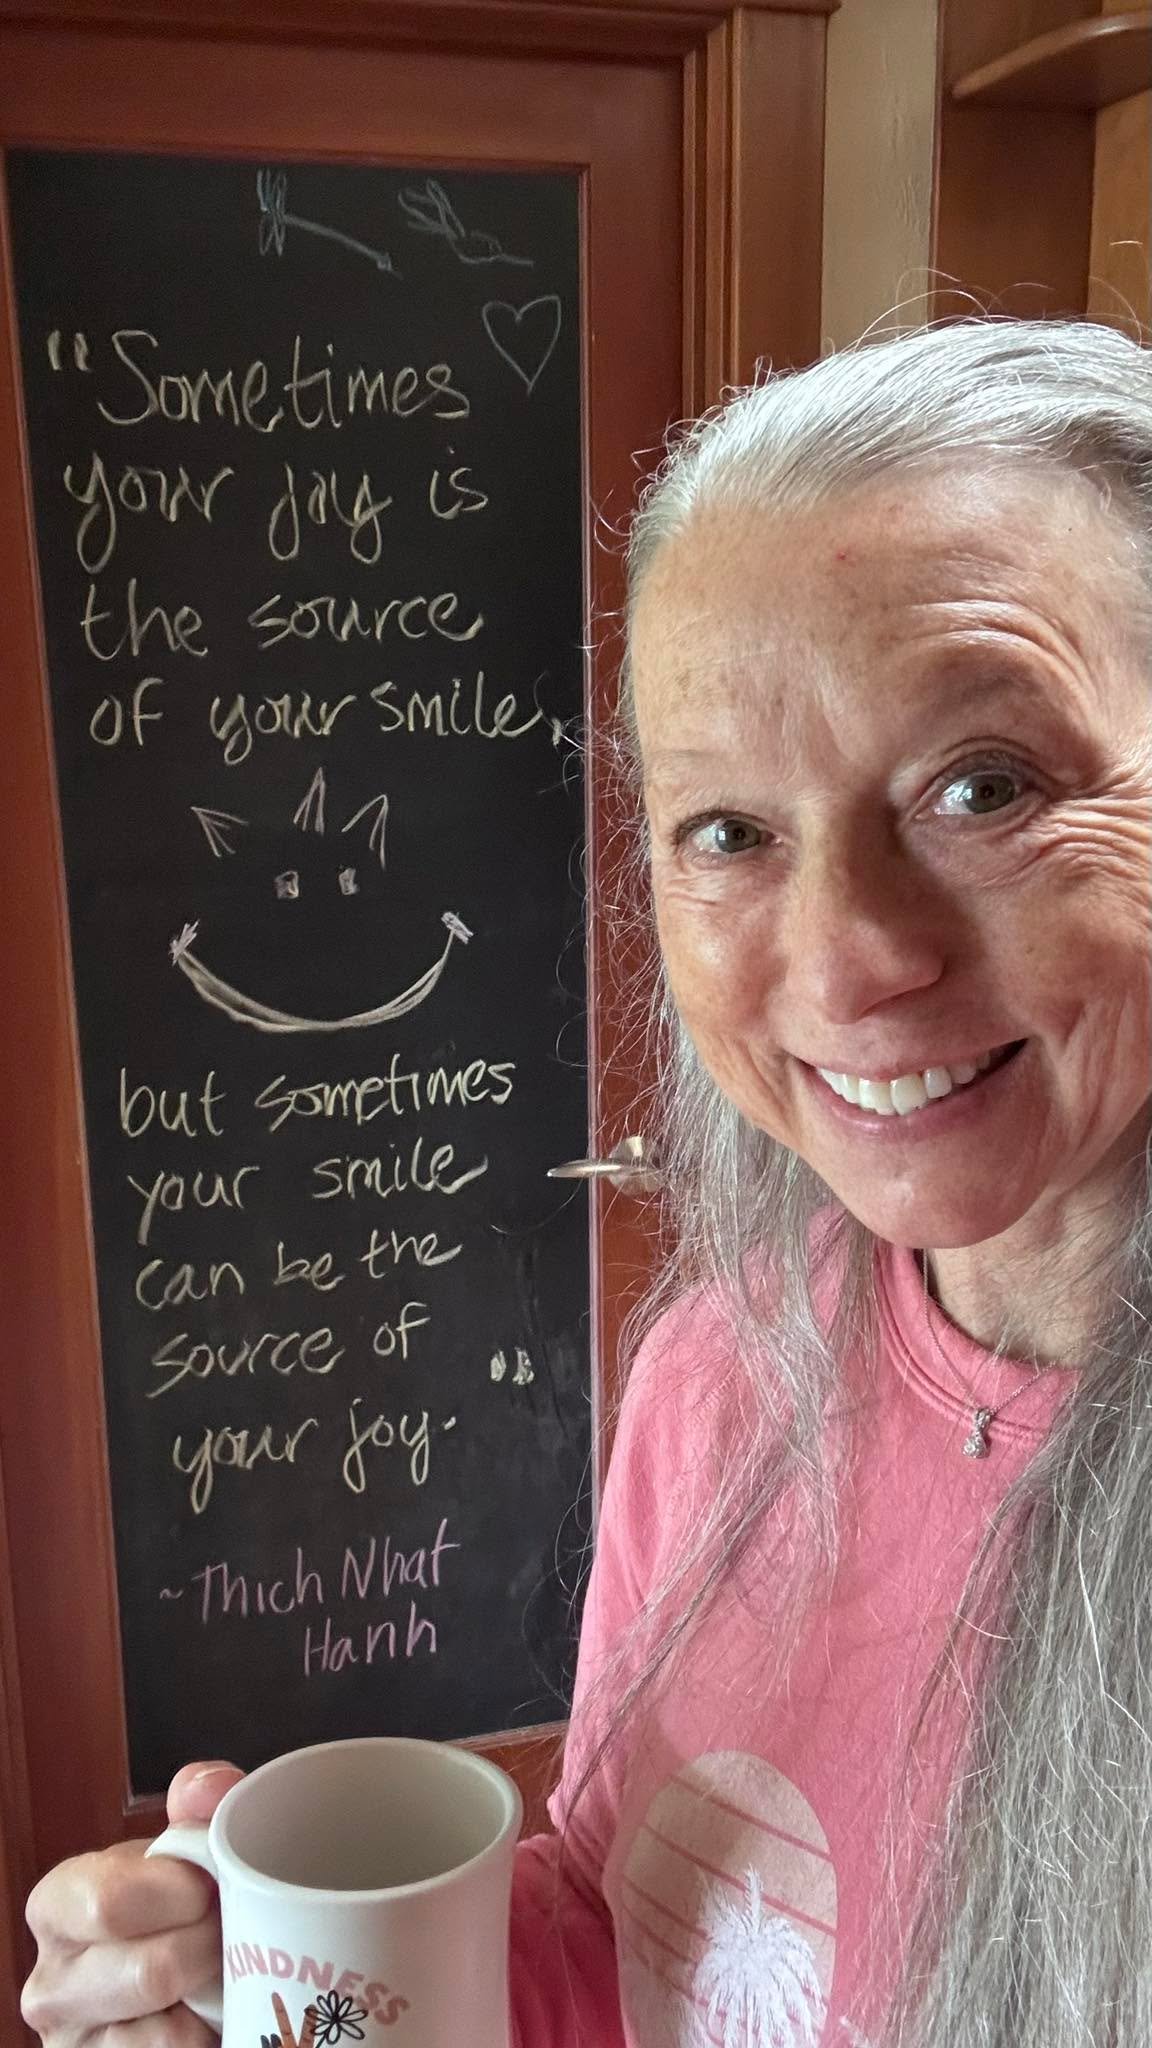 "Sometimes
your joy is
the source
of your smile,
but sometimes
your smile
can be the
source of
your joy.
~Thich Nhat
Hanh
KINDNESS